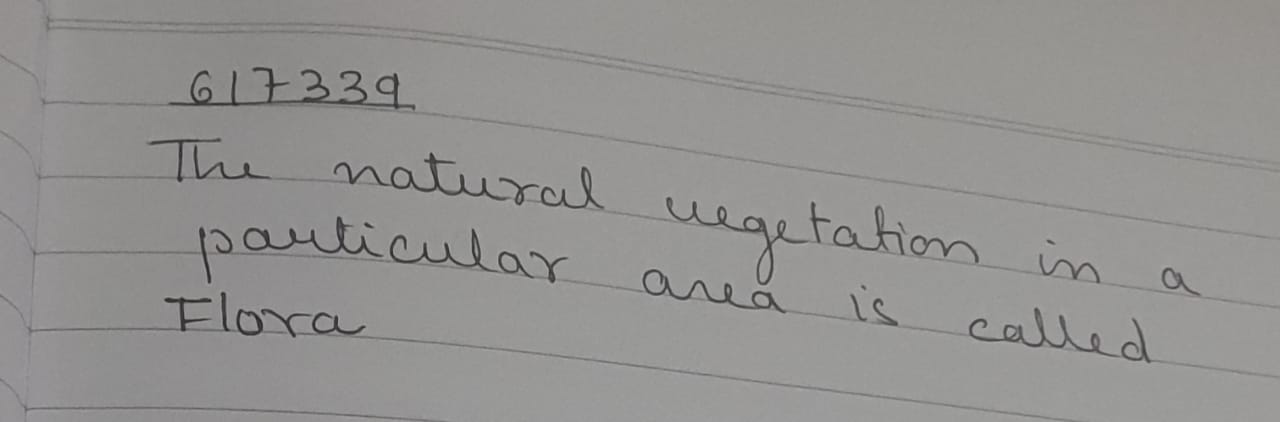 617339
The natural vegetation in a
particular area is called
Flora